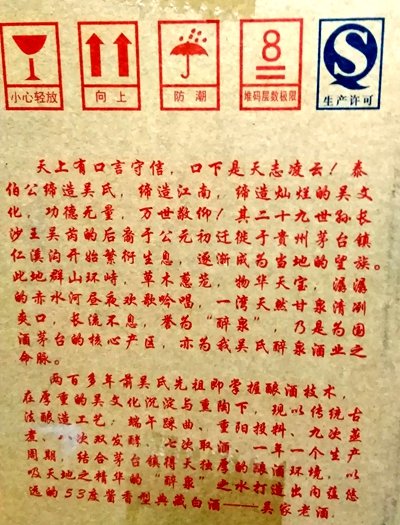 8
小心轻放 向上 防潮 堆码层数极限 生产许可
天上有口言守信，口下是天志凌云！泰
伯公缔造吴氏，缔造江南，缔造灿烂的吴文
化，功德无量，万世敬仰！其二十九世孙长
沙王吴芮的后裔于公元初迁徙于贵州茅台镇
仁溪沟开始繁衍生息，逐渐成为当地的望族。
此地群山环峙，草木葱茏，物华天宝，潺潺
的赤水河昼夜欢歌吟唱，一湾天然甘泉清冽
爽口，长流不息，誉为“醉泉”，乃是为国
酒茅台的核心产区，亦为我吴氏醉泉酒业之
命脉。
两百多年前吴氏先祖即掌握酿酒技术，
在厚重的吴文化沉淀与熏陶下，现以传统古
法酿造工艺：端午踩曲、重阳投料、九次蒸
煮、八次双发酵、七次取酒、一年一个生产
周期，结合茅台镇得天独厚的酿酒环境，以
吸天地之精华的“醉泉”之水打造出内蕴悠
远的53度酱香型典藏白酒——吴家老酒。